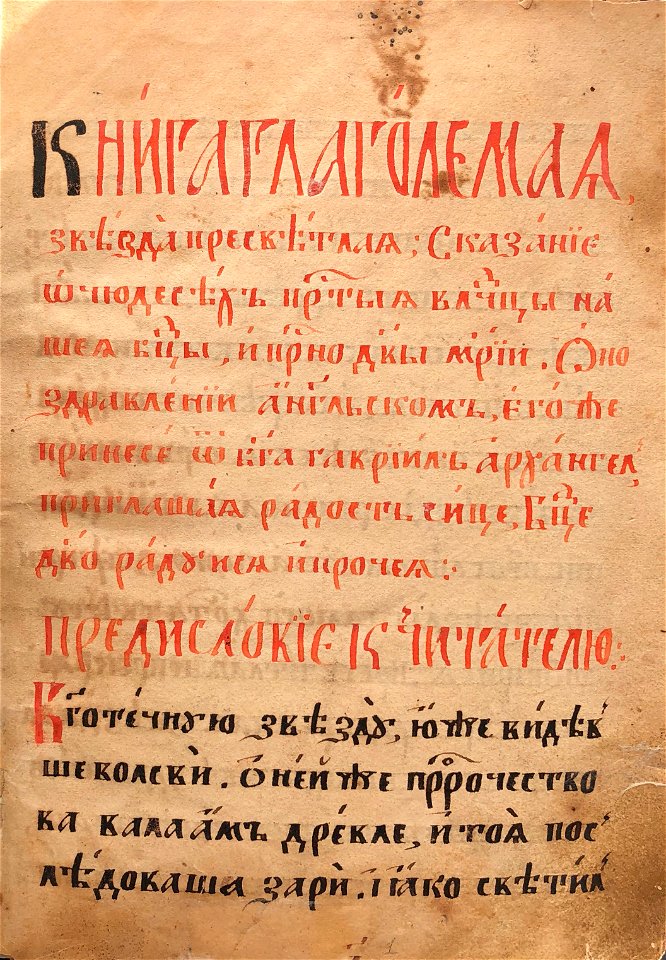 Кни́га глаго́лемая,
ѕвѣзда̀ пресвѣ́тлая; Сказа́нїе
ѡ҆ чюдесѣ́хъ прⷭ҇тыѧ влⷣчцы на́
шеѧ бцⷣы, и҆ прⷭ҇но дв҃ы мр҃їи. Ѡ҆ по
здравле́нїи а҆́нг҃льскомъ, е҆го́же
принесе́ ѿ бг҃а гаврїи́лъ а҆рха́нгел,
приглаша́ѧ ра́дость си́це, Бцⷣе
дв҃о ра́дуисѧ и҆ прочеѧ:
Предисло́вїе к чита́телю:
Бг҃оте́чную ѕвѣзду̀, ю҆́же видѣв
ше волсви̇. Ѡ҆ не́й же прⷪ҇рочество
ва валаа́мъ дре́вле, и҆ тоѧ̀ пос
лѣ́доваша зарѝ. Ꙗ҆́ко свѣти́л